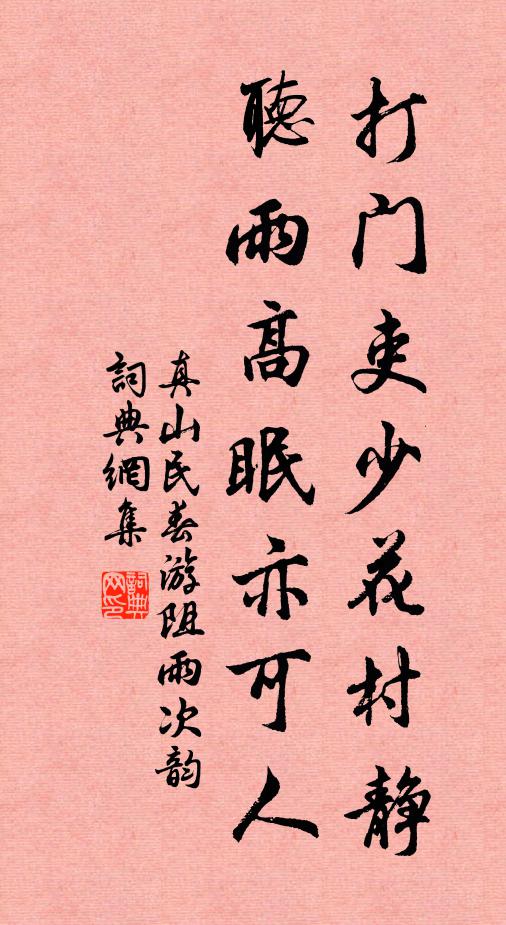 打门吏少花村静
聽雨高眠亦可人
真山民春游阻雨次韵
詞典網集
詞典网印